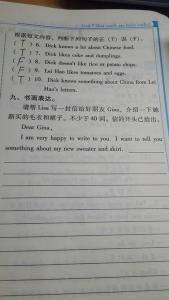 根据短文内容，判断下列句子的正（T）误（F）。
( T ) 6. Dick knows a lot about Chinese food.
( T ) 7. Dick likes cake and dumplings.
( F ) 8. Dick doesn't like rice or potato chips.
( F ) 9. Lei Hao likes tomatoes and eggs.
( T ) 10. Dick knows something about China from Lei
Hao's letters.
九、书面表达。
请帮 Lisa 写一封信给好朋友 Gina，介绍一下她
新买的毛衣和裙子。不少于 40 词，信的开头已给出。
Dear Gina,
I am very happy to write to you. I want to tell you
something about my new sweater and skirt.